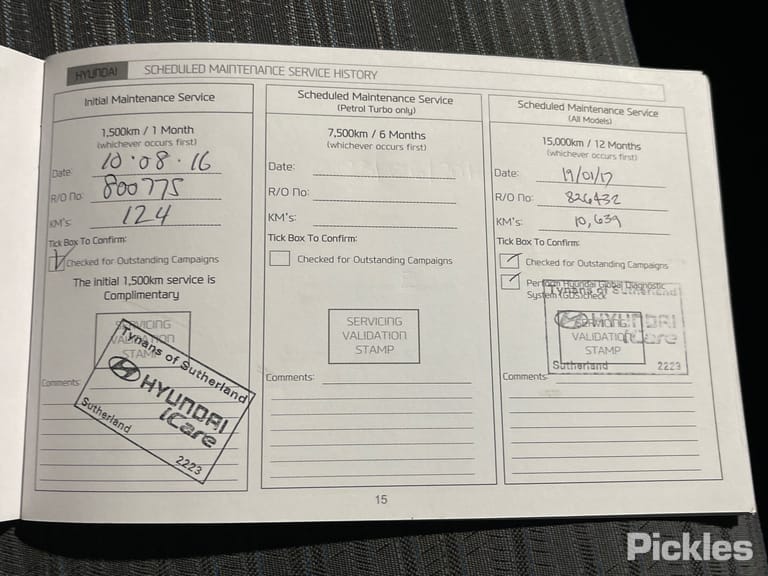 HYUNDAI SCHEDULED MAINTENANCE SERVICE HISTORY
Initial Maintenance Service
1,500km / 1 Month
(whichever occurs first)
Date: 10·08·16
R/O No: 800775
KM's: 124
Tick Box To Confirm:
Checked for Outstanding Campaigns
The initial 1,500km service is
Complimentary
SERVICING
VALIDATION
STAMP
Tynans of Sutherland
HYUNDAI
iCare
Sutherland 2223
Comments:
Scheduled Maintenance Service
(Petrol Turbo only)
7,500km / 6 Months
(whichever occurs first)
Date:
R/O No:
KM's:
Tick Box To Confirm:
Checked for Outstanding Campaigns
SERVICING
VALIDATION
STAMP
Comments:
Scheduled Maintenance Service
(All Models)
15,000km / 12 Months
(whichever occurs first)
Date: 19/01/17
R/O No: 826432
KM's: 10,639
Tick Box To Confirm:
Checked for Outstanding Campaigns
Perform Hyundai Global Diagnostic
System (GDS) check
Tynans of Sutherland
HYUNDAI
iCare
SERVICING
VALIDATION
STAMP
Sutherland 2223
Comments:
15
Pickles